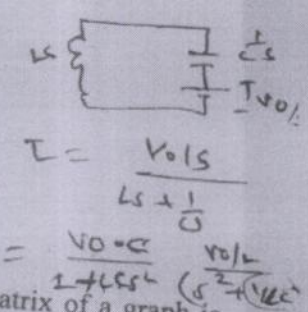 Ls
1/Cs
V0/s
I = V0/s / Ls + 1/Cs
= V0·C / 1+LCs² V0/L / (s²+1/LC)
atrix of a graph is